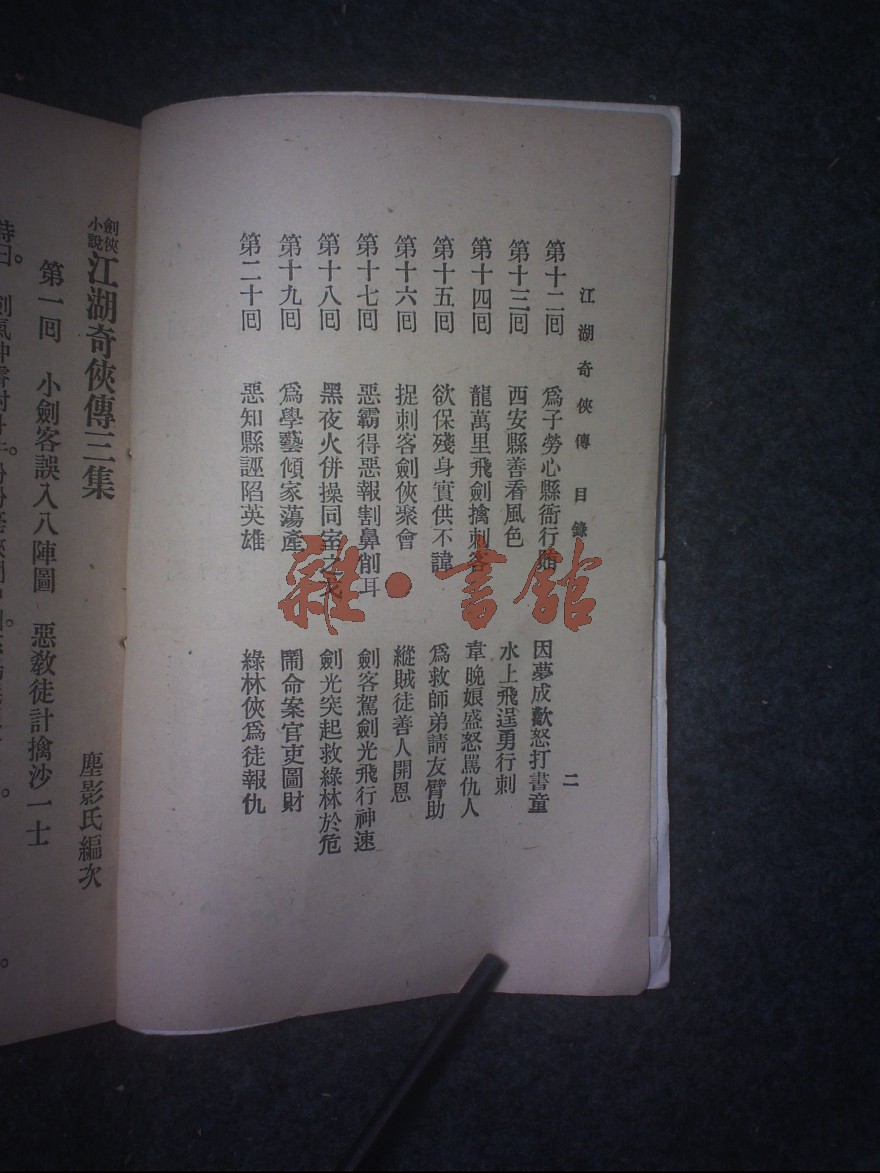 江湖奇俠傳　目錄　二
第十二囘　爲子勞心縣衙行賄　因夢成歡怒打書童
第十三囘　西安縣善看風色　水上飛逞勇行刺
第十四囘　龍萬里飛劍擒刺客　韋晚娘盛怒罵仇人
第十五囘　欲保殘身實供不諱　爲救師弟請友臂助
第十六囘　捉刺客劍俠聚會　縱賊徒善人開恩
第十七囘　惡霸得惡報割鼻削耳　劍客駕劍光飛行神速
第十八囘　黑夜火併操同室之戈　劍光突起救綠林於危
第十九囘　爲學藝傾家蕩產　鬧命案官吏圖財
第二十囘　惡知縣誣陷英雄　綠林俠爲徒報仇
劍俠小說江湖奇俠傳三集　塵影氏編次
第一囘　小劍客誤入八陣圖　惡教徒計擒沙一士
詩曰。
雜·書館